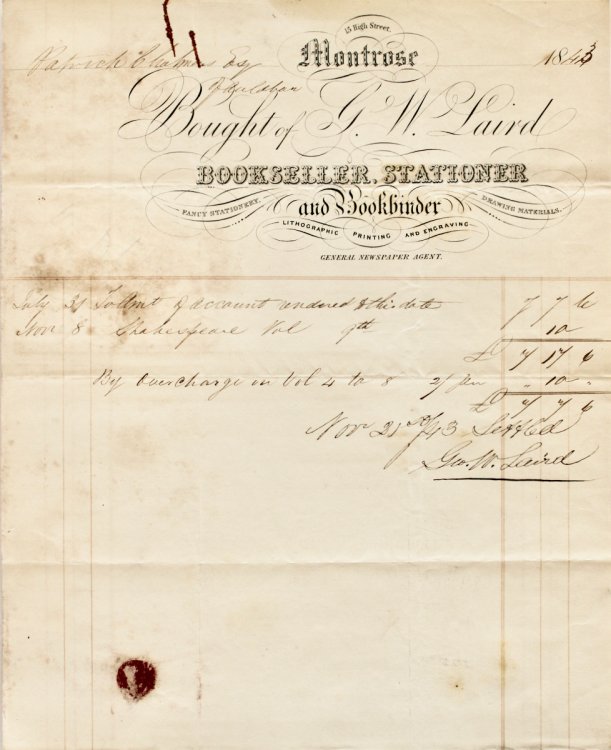 15 High Street.
Montrose 1843
Patrick Chalmers Esq
of Auldbar
Bought of G. W. Laird
BOOKSELLER, STATIONER
FANCY STATIONERY, and Bookbinder DRAWING MATERIALS.
LITHOGRAPHIC PRINTING AND ENGRAVING
GENERAL NEWSPAPER AGENT.
July 31 To Amt of account rendered to this date 7 7 6
Nov 8 Shakespeare Vol 9th 10
£ 7 17 6
By Overcharge on Vol 4 to 8 2/ per " 10 "
£ 7 7 6
Nov 21st /43 Settled
Geo. W. Laird